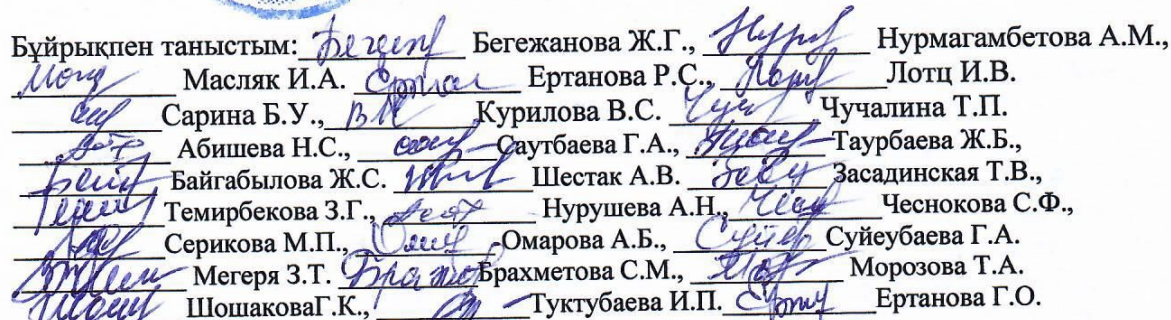 Бұйрықпен таныстым: Бегежанова Ж.Г., Нурмагамбетова А.М.,
Масляк И.А. Ертанова Р.С., Лотц И.В.
Сарина Б.У., Курилова В.С. Чучалина Т.П.
Абишева Н.С., Саутбаева Г.А., Таурбаева Ж.Б.,
Байгабылова Ж.С. Шестак А.В. Засадинская Т.В.,
Темирбекова З.Г., Нурушева А.Н., Чеснокова С.Ф.,
Серикова М.П., Омарова А.Б., Суйеубаева Г.А.
Мегеря З.Т. Брахметова С.М., Морозова Т.А.
ШошаковаГ.К., Туктубаева И.П. Ертанова Г.О.